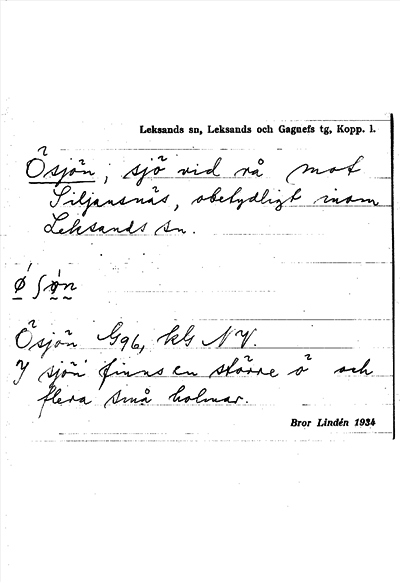 Leksands sn, Leksands och Gagnefs tg, Kopp. l.
Ösjön, sjö vid rå mot
Siljansnäs, obetydligt inom
Leksands sn.
Ösjön G96, kls NV.
I sjön finns en större ö och
flera små holmar.
Bror Lindén 1934